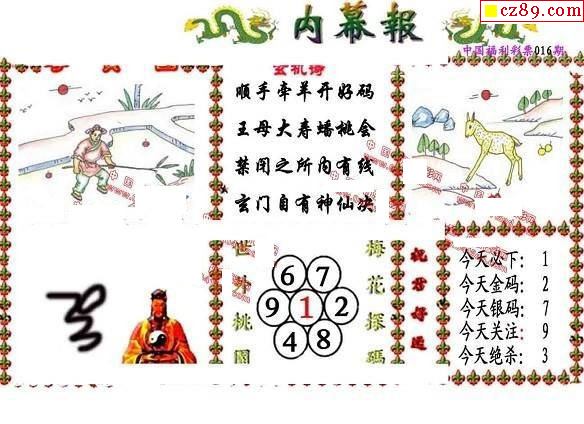 cz89.com
内幕報
中国福利彩票016期
玄机诗
顺手牵羊开好码
王母大寿蟠桃会
禁闭之所内有线
玄门自有神仙决
世外桃園
6 7
9 1 2
4 8
梅花探碼
祝君好运
今天必下：1
今天金码：2
今天银码：7
今天关注：9
今天绝杀：3